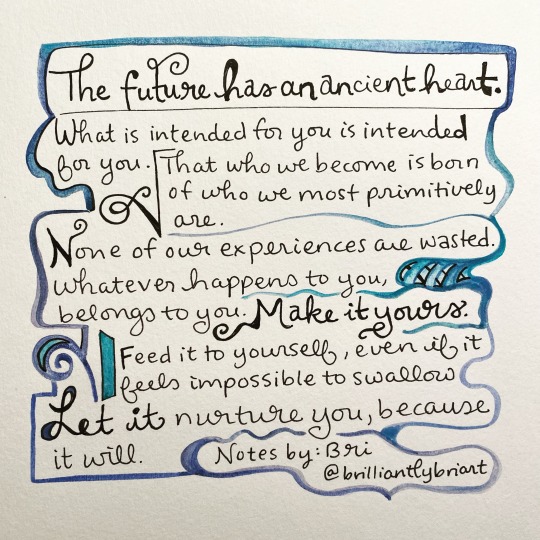 The future has an ancient heart.
What is intended for you is intended
for you. That who we become is born
of who we most primitively
are.
None of our experiences are wasted.
Whatever happens to you,
belongs to you. Make it yours.
Feed it to yourself, even if it
feels impossible to swallow
Let it nurture you, because
it will. Notes by: Bri
@brilliantlybriart